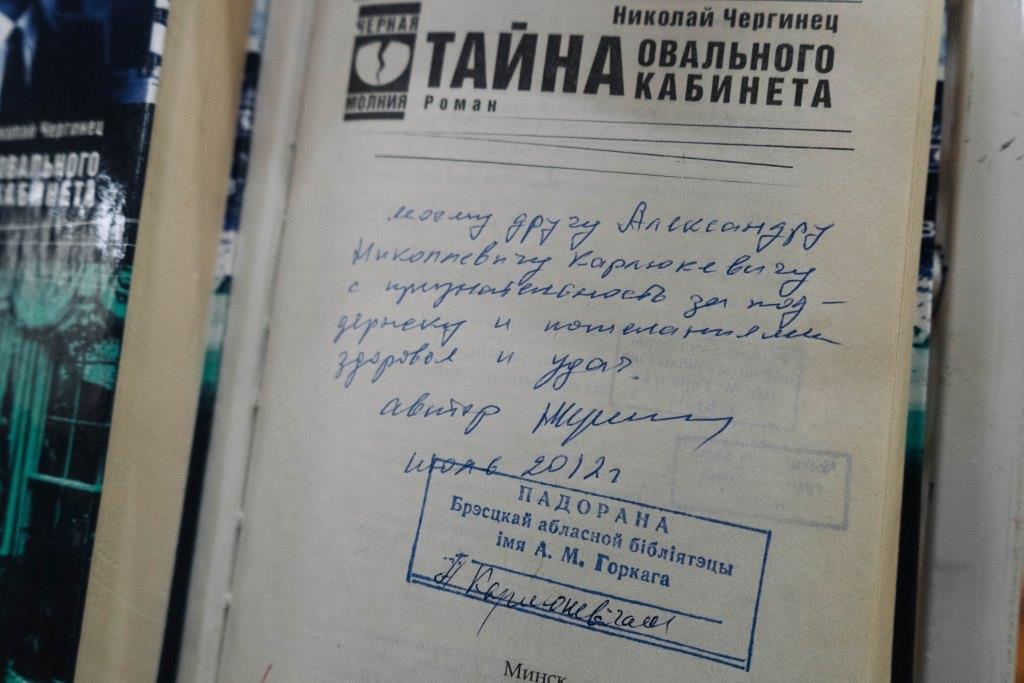 Николай Чергинец
ЧЕРНАЯ
МОЛНИЯ
ТАЙНА ОВАЛЬНОГО
КАБИНЕТА
Роман
моему другу Александру
Николаевичу Карлюкевичу
с признательность за под-
держку и пожеланиями
здоровья и удач.
автор
июль 2012 г
ПАДОРАНА
Брэсцкай абласной бібліятэцы
імя А. М. Горкага
А Карлюкевічам
Минск
николай Чергинец
ОВАЛЬНОГО
КАБИНЕТА